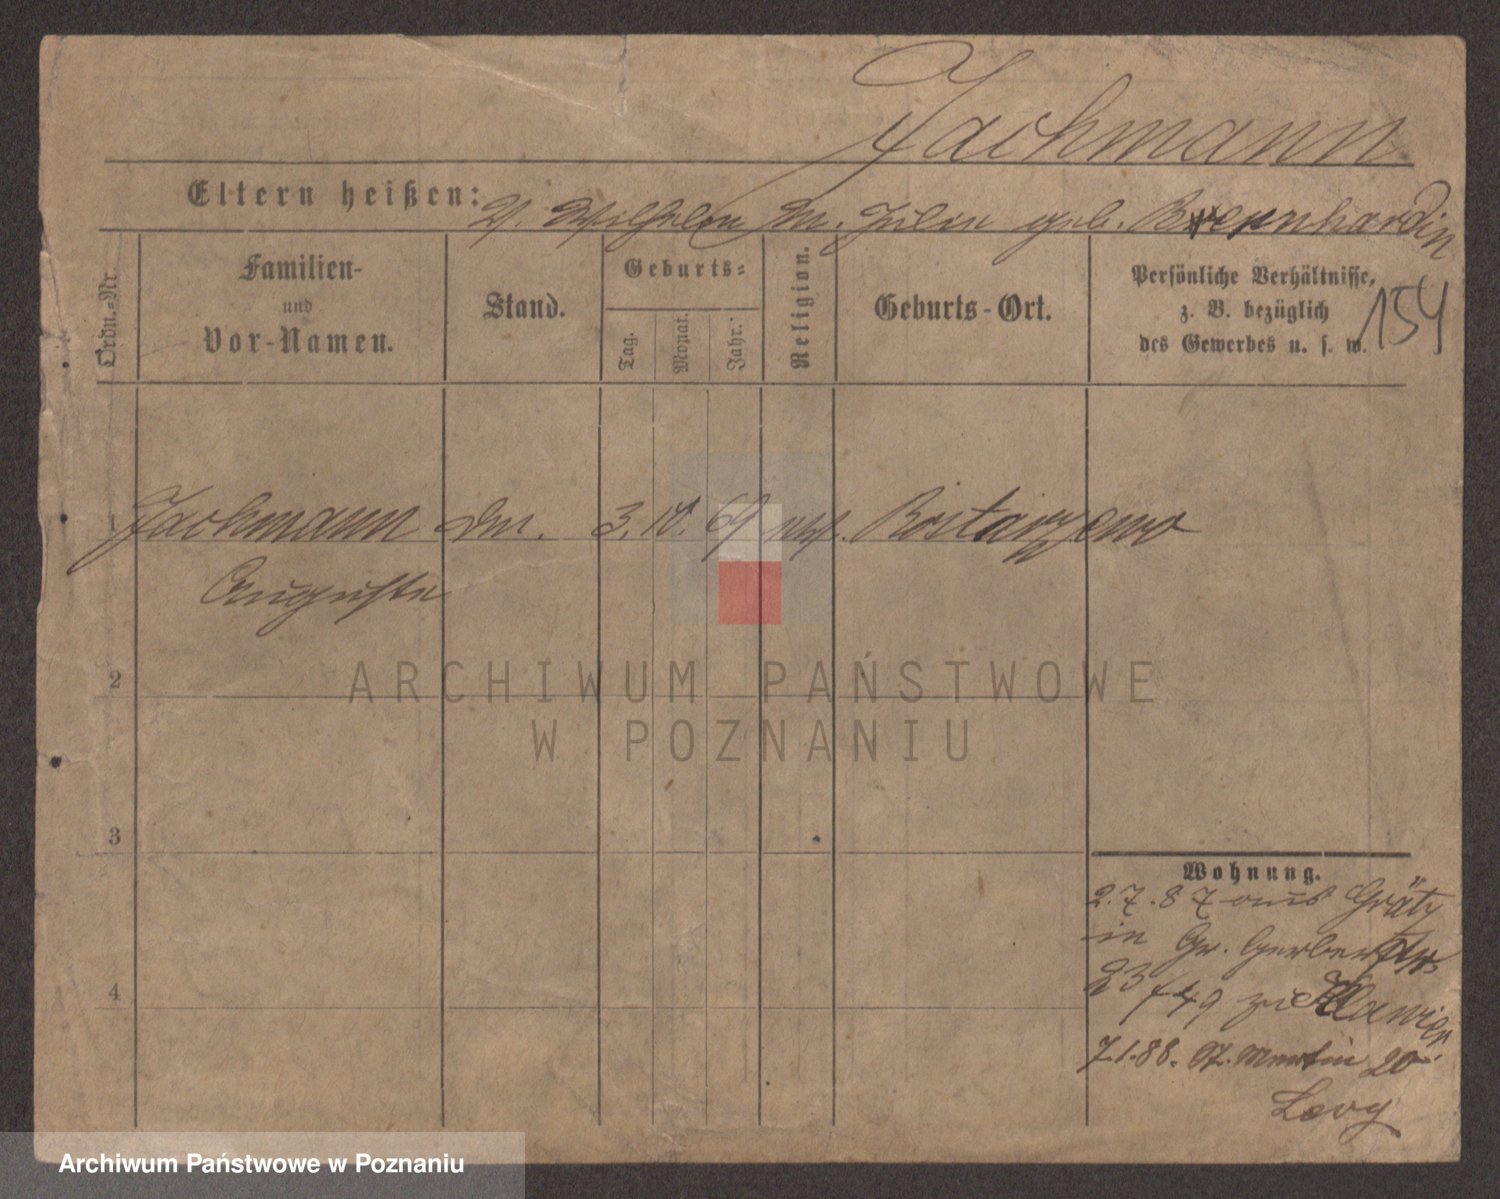 Jachmann
Eltern heißen: V. Wilhelm M. Julie geb. Bernhardin
154
Ordn.-Nr.
Familien-
und
Vor-Namen.
Stand.
Geburts-
Tag.
Monat.
Jahr.
Religion.
Geburts-Ort.
Persönliche Verhältnisse,
z. B. bezüglich
des Gewerbes u. s. w.
1
Jachmann 3. 10. 69
Auguste
2
ARCHIWUM PAŃSTWOWE
W POZNANIU
3
4
Wohnung.
2.7.87 aus Grätz
in Gr. Gerberstr.
23/49 zu
7.1.88. St. Martin 20
Levy
Archiwum Państwowe w Poznaniu